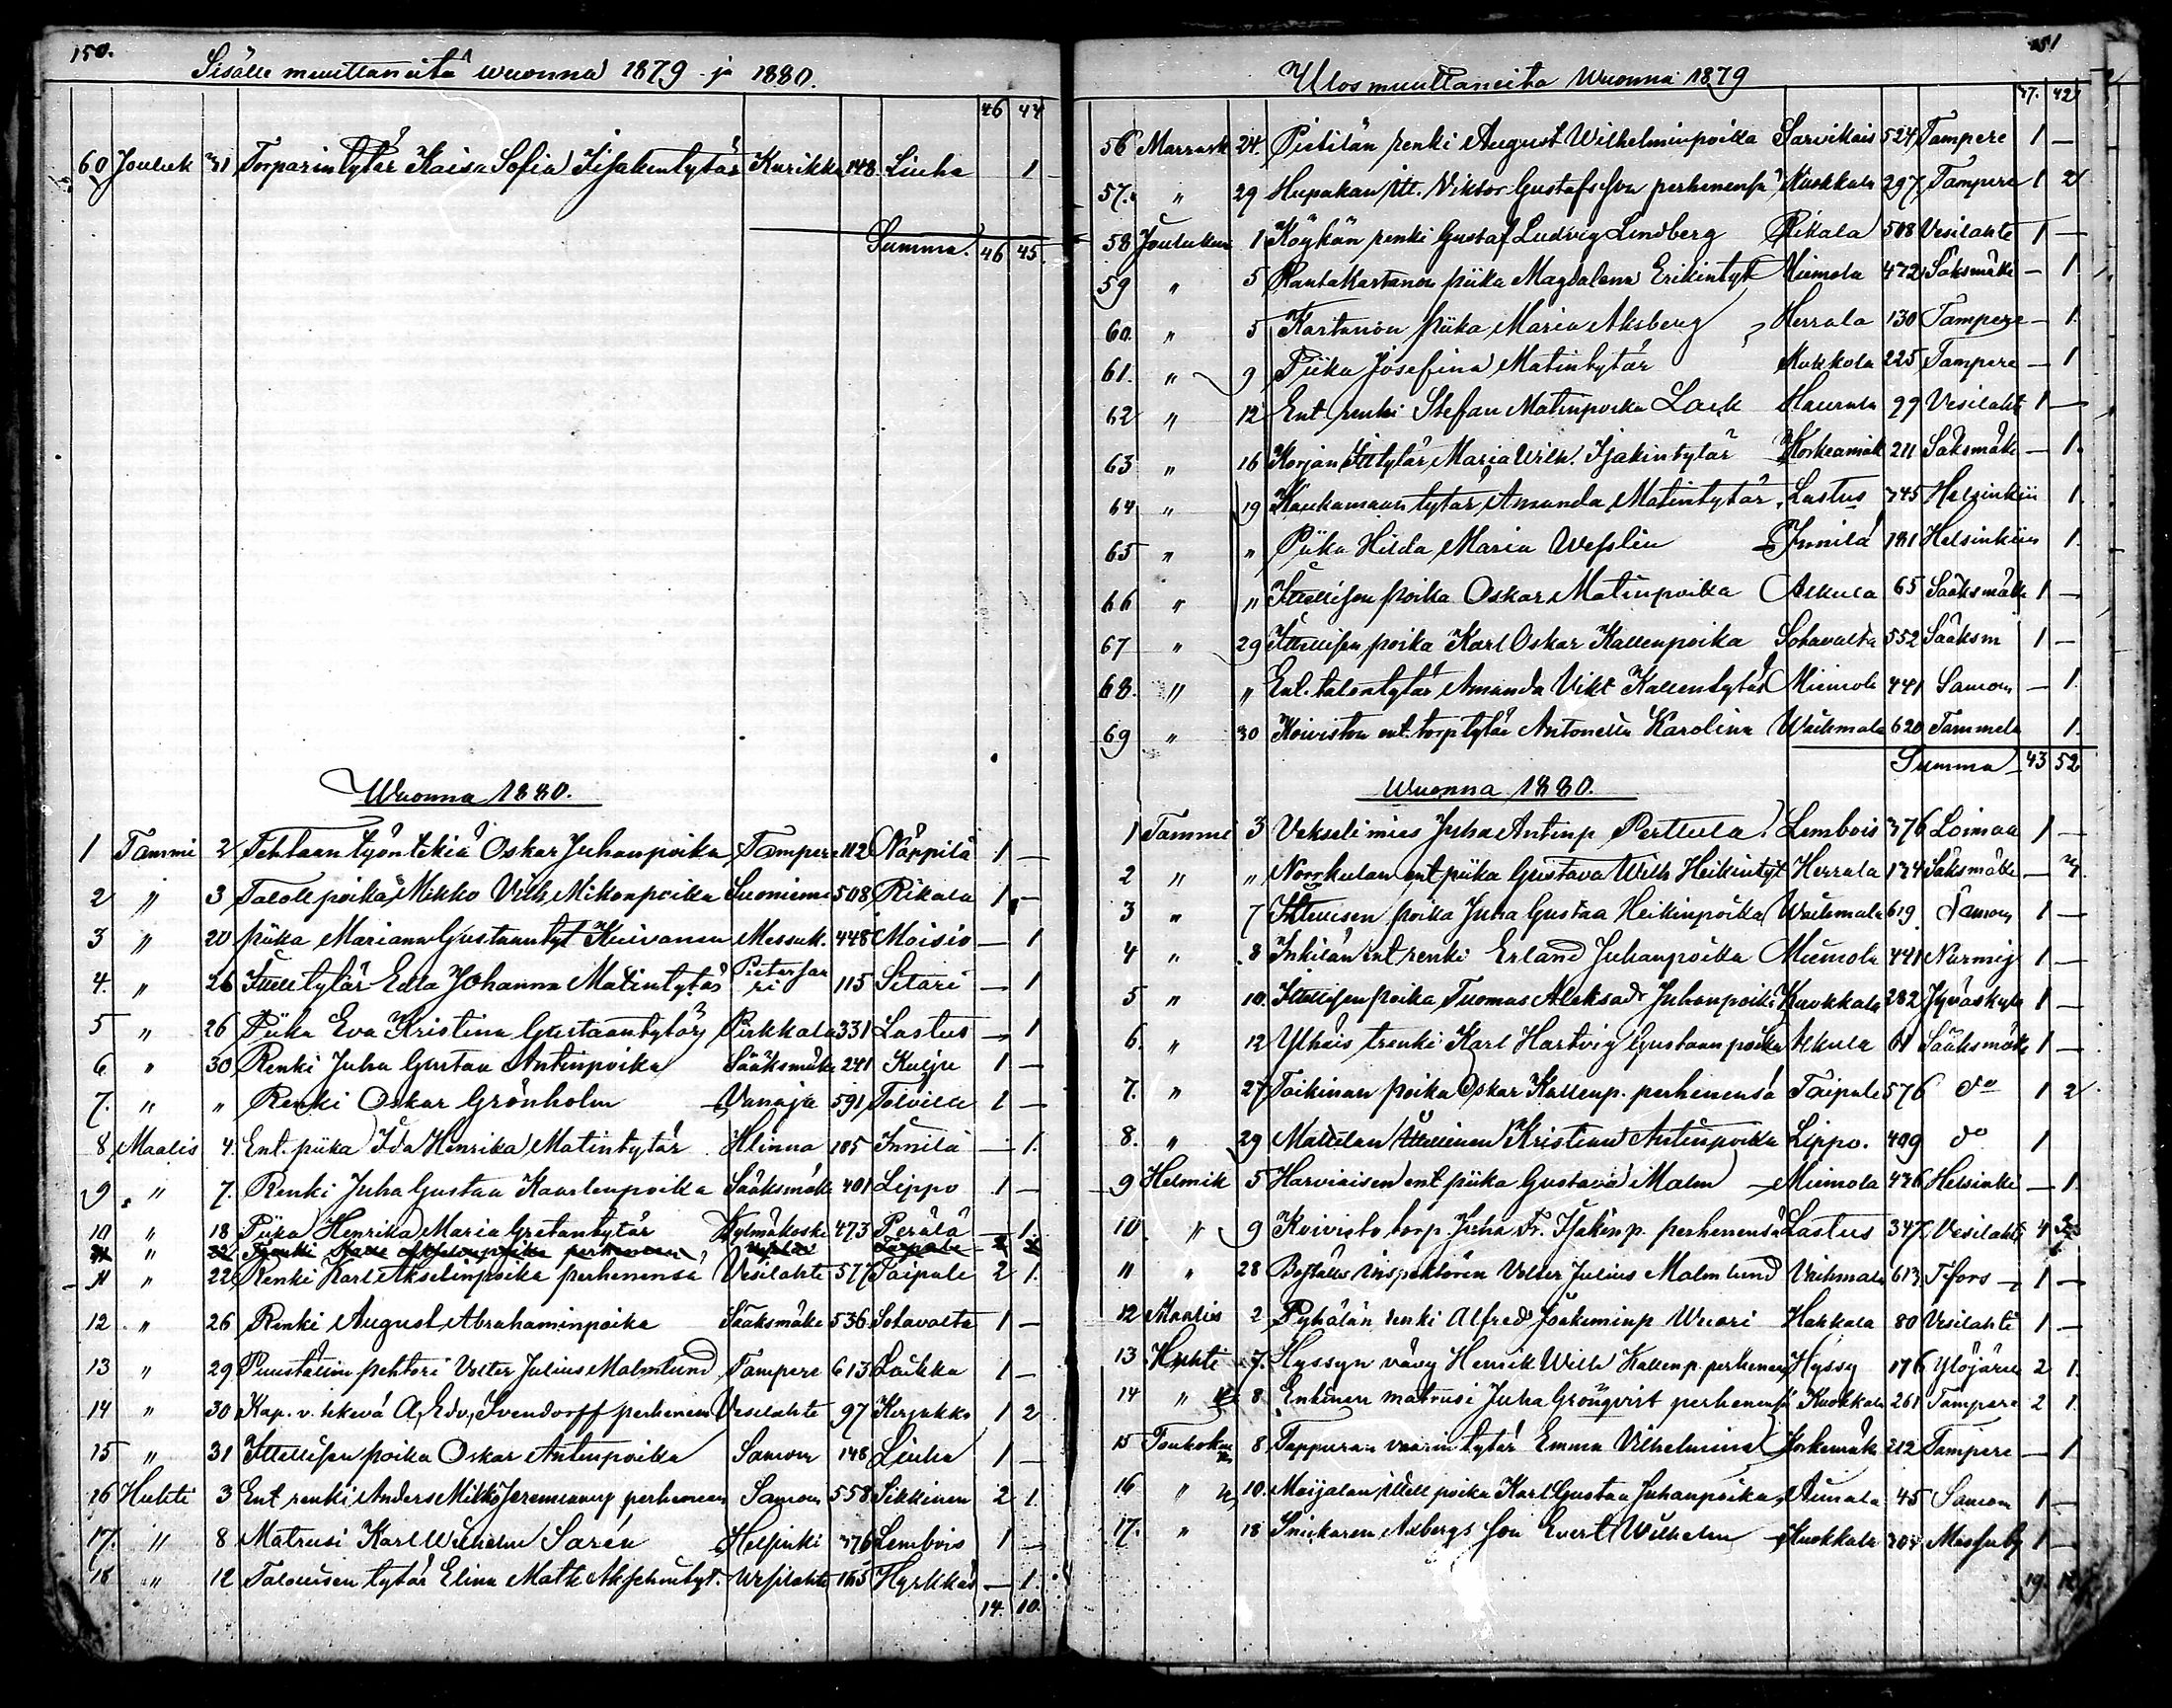 150.
Sisälle muuttaneita wuonna 1879 ja 1880.
46 44
60 Jouluk 31 Torparin tytär Kaisa Sofia Iisakintytär Kurikka 148 Liuha 1
Summa. 46 45.
Wuonna 1880.
1 Tammi 2 Tehtaan työntekiä Oskar Juhanpoika Tampere 112 Näppilä 1 —
2 " 3 Talol. poika Mikko Vilh. Mikonpoika Suoniemi 508 Rikala 1 —
3 " 20 piika Mariana Gustaantyt Kuivanen Messuk. 448 Moisio — 1
4. " 26 Itell tytär Edla Johanna Matintytär Pietersaari 115 Sitari — 1
5 " 26 Piika Eva Kristina Gustaantytär Pirkkala 331 Lastus — 1
6 " 30 Renki Juha Gustaa Antinpoika Sääksmäke 241 Kulju 1 —
7. " " Renki Oskar Grönholm Vanaja 591 Toivila 1 —
8 Maalis 4. Ent. piika Ida Henrika Matintytär 185 Innilä — 1.
9 " 7. Renki Juha Gustaa Kaarlenpoika Sääksmäk 401 Lippo 1 —
10 " 18 Piika Henrika Maria Gretantytär Kylmäkoski 473 Perälä — 1.
11 " 22 Renki Karl Akselinpoika perhenensä Vesilahte 577 Taipale 2 1.
12 " 26 Renki August Abrahaminpoika Sääksmäke 536 Sotavalta 1 —
13 " 29 Puustellin pehtori Volter Julius Malmlund Tampere 613 Laikka 1 —
14 " 30 Kap. v. tekevä A. Edv. Svendorff perhenein Vesilahte 97 Kirjakko 1 2
15 " 31 Itellisen poika Oskar Antinpoika Samon 148 Liuha 1 —
16 Huhti 3 Ent renki Anders Mikko Jeremianp perhenein Samon 558 Sikkinen 2 1.
17. " 8 Matrusi Karl Wilhelm Sarén Helsinki 376 Lembois 1 —
18 " 12 Talollisen tytär Elina Math Akselintyt. Vesilahte 165 Hyrkkäs — 1.
14. 10.
151
Ulosmuuttaneita Wuonna 1879
47. 42
56 Marrask 24. Pietilän renki August Wilhelminpoika Sarvikais 524 Tampere 1 —
57. " 29 Hepakan itt. Viktor Gustafsson perhenensä Kuokkala 297 Tampere 1 2
58 Jouluku 1 Köykän renki Gustaf Ludvig Lindberg Rikala 508 Vesilahte 1 —
59 " 5 RantaKartanon piika Magdalena Erikintyt Miemola 472 Sääksmäki — 1
60. " 5 Kartanon piika Maria Aksberg Herrala 130 Tampere — 1.
61. " 9 Piika Josefina Matintytär Kukkola 225 Tampere — 1
62 " 12 Ent renki Stefan Matinpoika Lack Haurala 99 Vesilahti 1 —
63 " 16 Korjan Ittytär Maria Wilh. Isakintytär Korkeamäk 211 Sääksmäke — 1.
64 " 19 Kaukamaan tytär Amanda Matintytär Lastus 345 Helsinkiin 1.
65 " " Piika Hilda Maria Wesslin Innilä 181 Helsinkiin 1.
66 " " Itellisen poika Oskar Matinpoika Alkula 65 Sääksmäke 1 —
67 " 29 Itellisen poika Karl Oskar Kallenpoika Sotavalta 552 Sääksm 1 —
68. " " Ent. talontytär Amanda Vikt Kallentytär Miemola 441 Samon — 1.
69 " 30 Koiviston ent. torp tytär Antonella Karolina Waihmala 620 Tammela 1.
Summa 43 52
Wuonna 1880.
1 Tammi 3 Vekseli mies Juha Antinp Perttula Lembois 376 Loimaa 1 —
2 " " Norrkulan ent piika Gustava Wilh Heikintyt Herrala 134 Sääksmäke —
3 " 7 Itellisen poika Juha Gustaa Heikinpoika Waihmala 619 Samon 1 —
4 " 8 Inkilän ent renki Erland Juhanpoika Miemola 441 Nurmij 1 —
5 " 10. Itellisen poika Tuomas Aleksad Juhanpoika Kuokkala 282 Jyväskyla 1 —
6. " 12 Ylhäis t renki Karl Hartvig Gustaanpoika Alkula 61 Sääksmäke 1 —
7. " 27 Taikinan poika Oskar Kallenp. perhenensä Taipale 576 do 1 2
8. " 29 Mattilan Itellinen Kristian Antinpoika Lippo. 409 do 1
9 Helmik 5 Harviaisen ent piika Gustava Malm Miemola 436 Helsinki — 1.
10. " 9 Koivisto torp. Juha Fr. Isakinp. perhenensä Lastus 347 Vesilahti 4
11 " 28 Boställs inspektoren Volter Julius Malmlund Waihmala 613 T:fors 1 —
12 Maalis 2 Pyhälän renki Alfred Joakiminp Wuori Hakkala 80 Vesilahti 1 —
13 Huhti 7. Hyssyn vävy Henrik Wilh Kallenp. perhenein Hyssy 176 Ylöjärvi 2 1.
14 " 8 Enkinen matrusi Juha Grönqvist perhenensä Kuokkala 261 Tampere 2 1.
15 Toukoku 8 Tappuran vaarin tytär Emma Vilhelmina Korkemäk 212 Tampere — 1
16 " 10. Moijalan itell poika Karl Gustaa Juhanpoika Aimala 45 Samon 1 —
17. " 18 Snickaren Axbergs son Evert Wilhelm Kuokkala 304 Massuby 1 —
19. 12